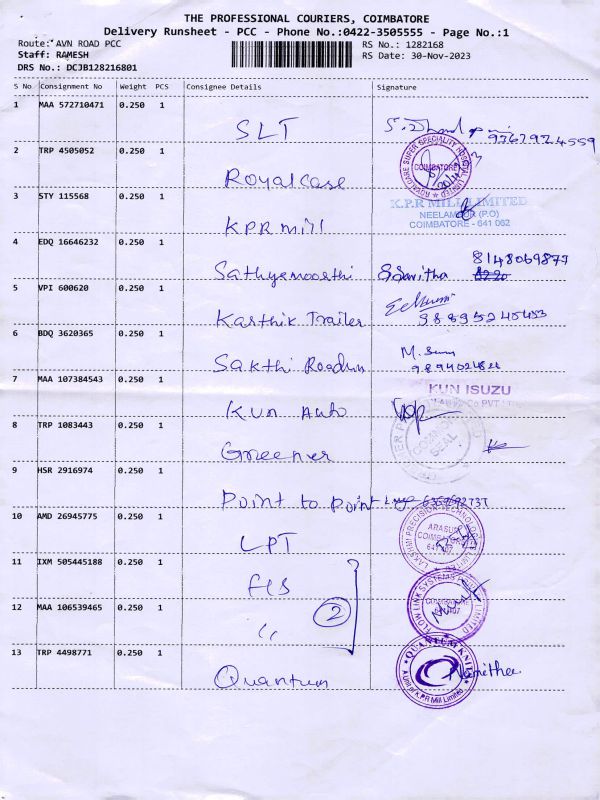 THE PROFESSIONAL COURIERS, COIMBATORE
Delivery Runsheet - PCC - Phone No.:0422-3505555 - Page No.:1
Route: AVN ROAD PCC
RS No.: 1282168
Staff: RAMESH
RS Date: 30-Nov-2023
DRS No.: DCJB128216801
S No Consignment No Weight PCS Consignee Details Signature
1 MAA 572710471 0.250 1
SLT
2 TRP 4505052 0.250 1
Royalcase
ROYALCARE SUPER SPECIALITY HOSPITAL LIMITED
COIMBATORE
3 STY 115568 0.250 1
KPR mill
K.P.R MILL LIMITED
NEELAMBUR (P.O)
COIMBATORE - 641 062
4 EDQ 16646232 0.250 1
Sathyamoorthi
Savitha
5 VPI 600620 0.250 1
Karthik Trailer
6 BDQ 3620365 0.250 1
Sakthi
7 MAA 107384543 0.250 1
Kun Auto
KUN ISUZU
8 TRP 1083443 0.250 1
Greener
COMMON SEAL
9 HSR 2916974 0.250 1
Point to point
10 AMD 26945775 0.250 1
LPT
LAKSHMI PRECISION TECHNOLOGIES LIMITED
ARASUR
COIMBATORE
641 407
11 IXM 505445188 0.250 1
FLS
FLOW LINK SYSTEMS PRIVATE LIMITED
COIMBATORE
12 MAA 106539465 0.250 1
"
2
13 TRP 4498771 0.250 1
Quantum
QUANTUM KNITS
A Unit of K.P.R Mill Limited
Namitha